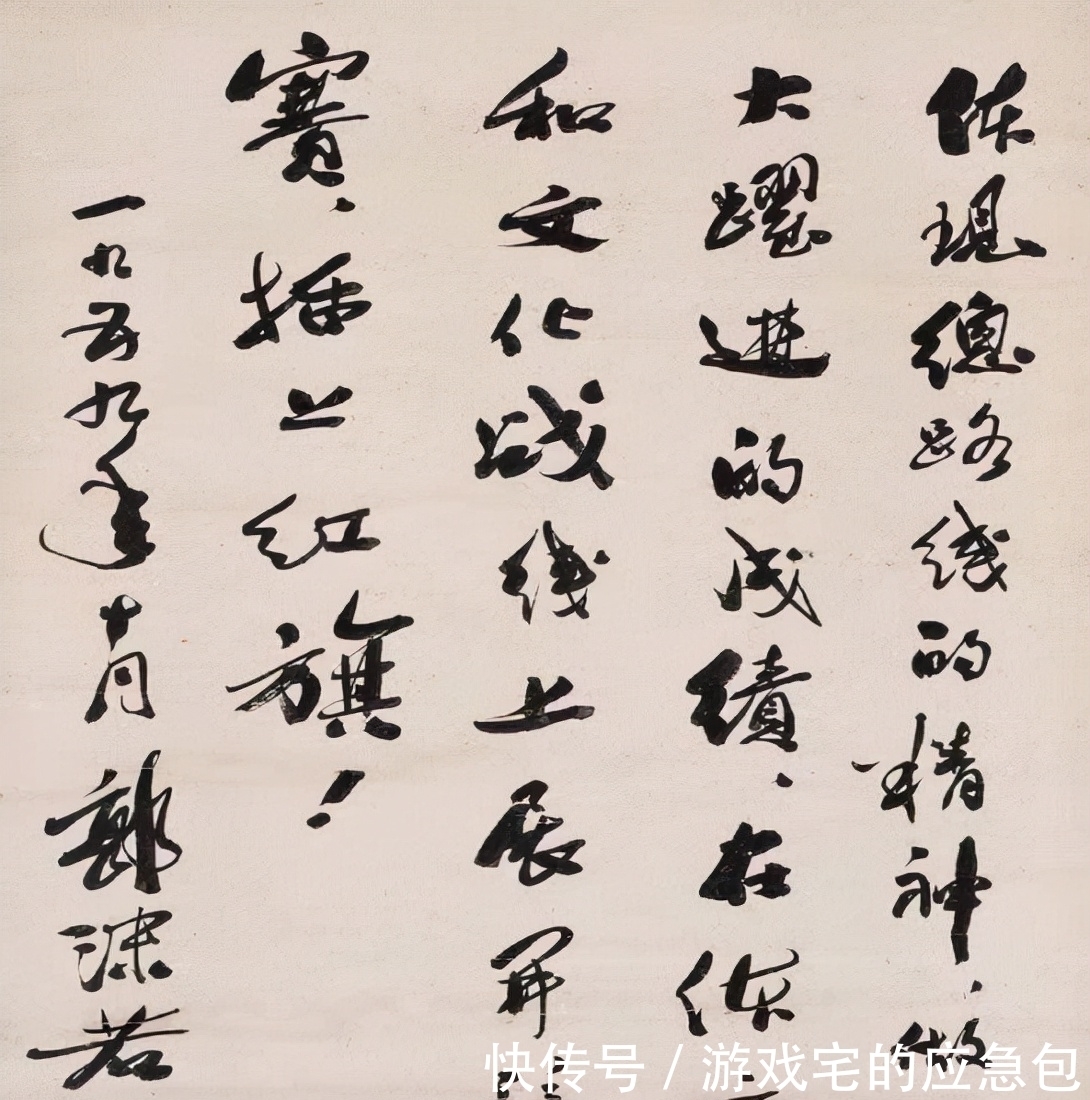 体现總路线的精神、做
大躍進的成績、在体
和文化战线上展開
賽、插上红旗！
一九五九年十月郭沫若
快传号 / 游戏宅的应急包